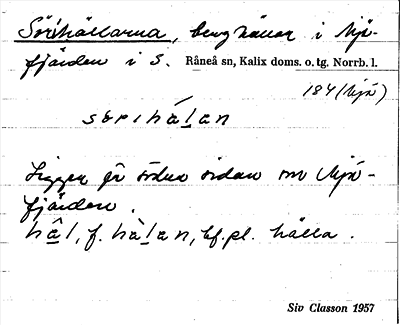 Sörihällarna, berghällar i Mjö-
fjärden i S. Råneå sn, Kalix doms. o. tg. Norrb. l.
184 (Mjö)
Ligger på södra sidan om Mjö-
fjärden.
hâl, f. hàlan, bf. pl. hälla.
Siv Classon 1957